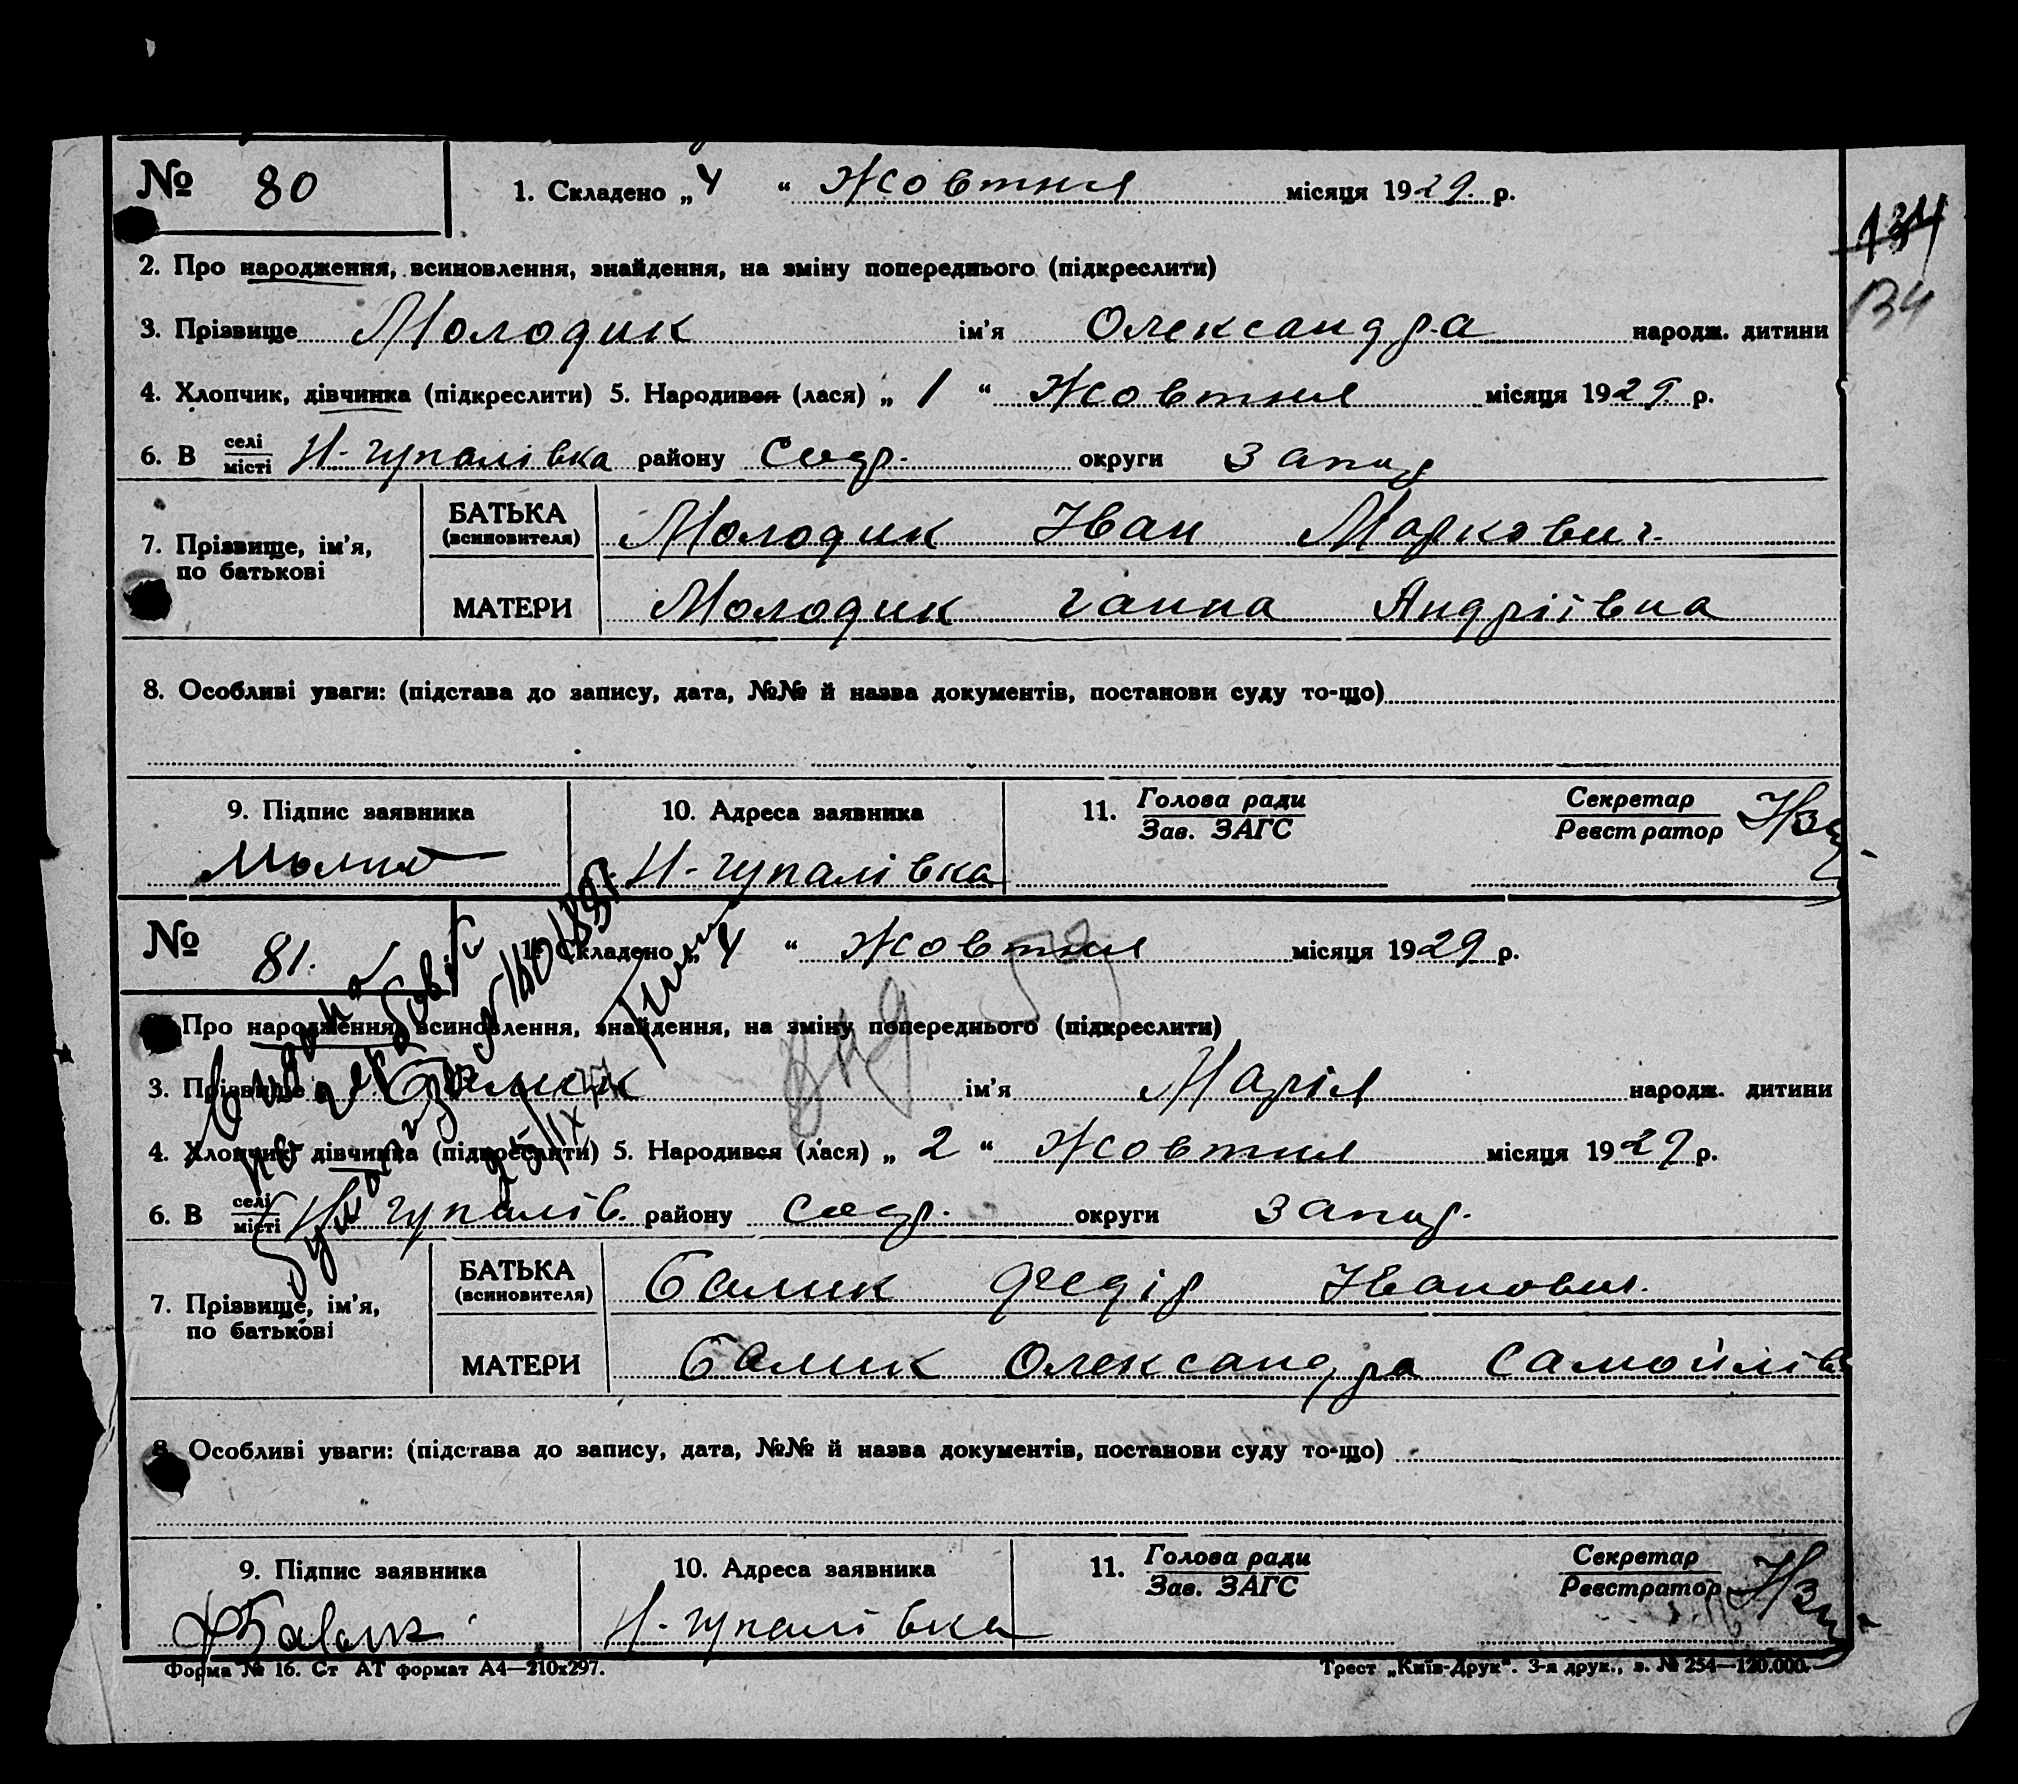 № 80 1. Складено „4“ Жовтня місяця 1929 р.
134
2. Про народження, всиновлення, знайдення, на зміну попереднього (підкреслити)
134
3. Прізвище Молодик ім'я Олександра народж. дитини
4. Хлопчик, дівчинка (підкреслити) 5. Народився (лася) „1“ Жовтня місяця 1929 р.
6. В селі місті Н-Гупалівка району Сидр. округи Запид
7. Прізвище, ім'я, по батькові
БАТЬКА (всиновителя) Молодик Іван Маркович.
МАТЕРИ Молодик Ганна Андріївна
8. Особливі уваги: (підстава до запису, дата, №№ й назва документів, постанови суду то-що)
9. Підпис заявника 10. Адреса заявника 11. Голова ради Зав. ЗАГС Секретар Реєстратор
Н-Гупалівка
№ 81. 1. Складено „4“ Жовтня місяця 1929 р.
Про народження, всиновлення, знайдення, на зміну попереднього (підкреслити)
3. Прізвище Балик ім'я Марія народж. дитини
4. Хлопчик, дівчинка (підкреслити) 5. Народився (лася) „2“ Жовтня місяця 1929 р.
6. В селі місті Н-Гупалів. району Сидр. округи Запид.
7. Прізвище, ім'я, по батькові
БАТЬКА (всиновителя) Балик Федір Іванович.
МАТЕРИ Балик Олександра Самойлів
8. Особливі уваги: (підстава до запису, дата, №№ й назва документів, постанови суду то-що)
9. Підпис заявника 10. Адреса заявника 11. Голова ради Зав. ЗАГС Секретар Реєстратор
Н-Гупалівка
Форма № 16. Ст АТ формат А4—210х297. Трест „Київ-Друк“. 3-я друк., з. № 254—120.000.